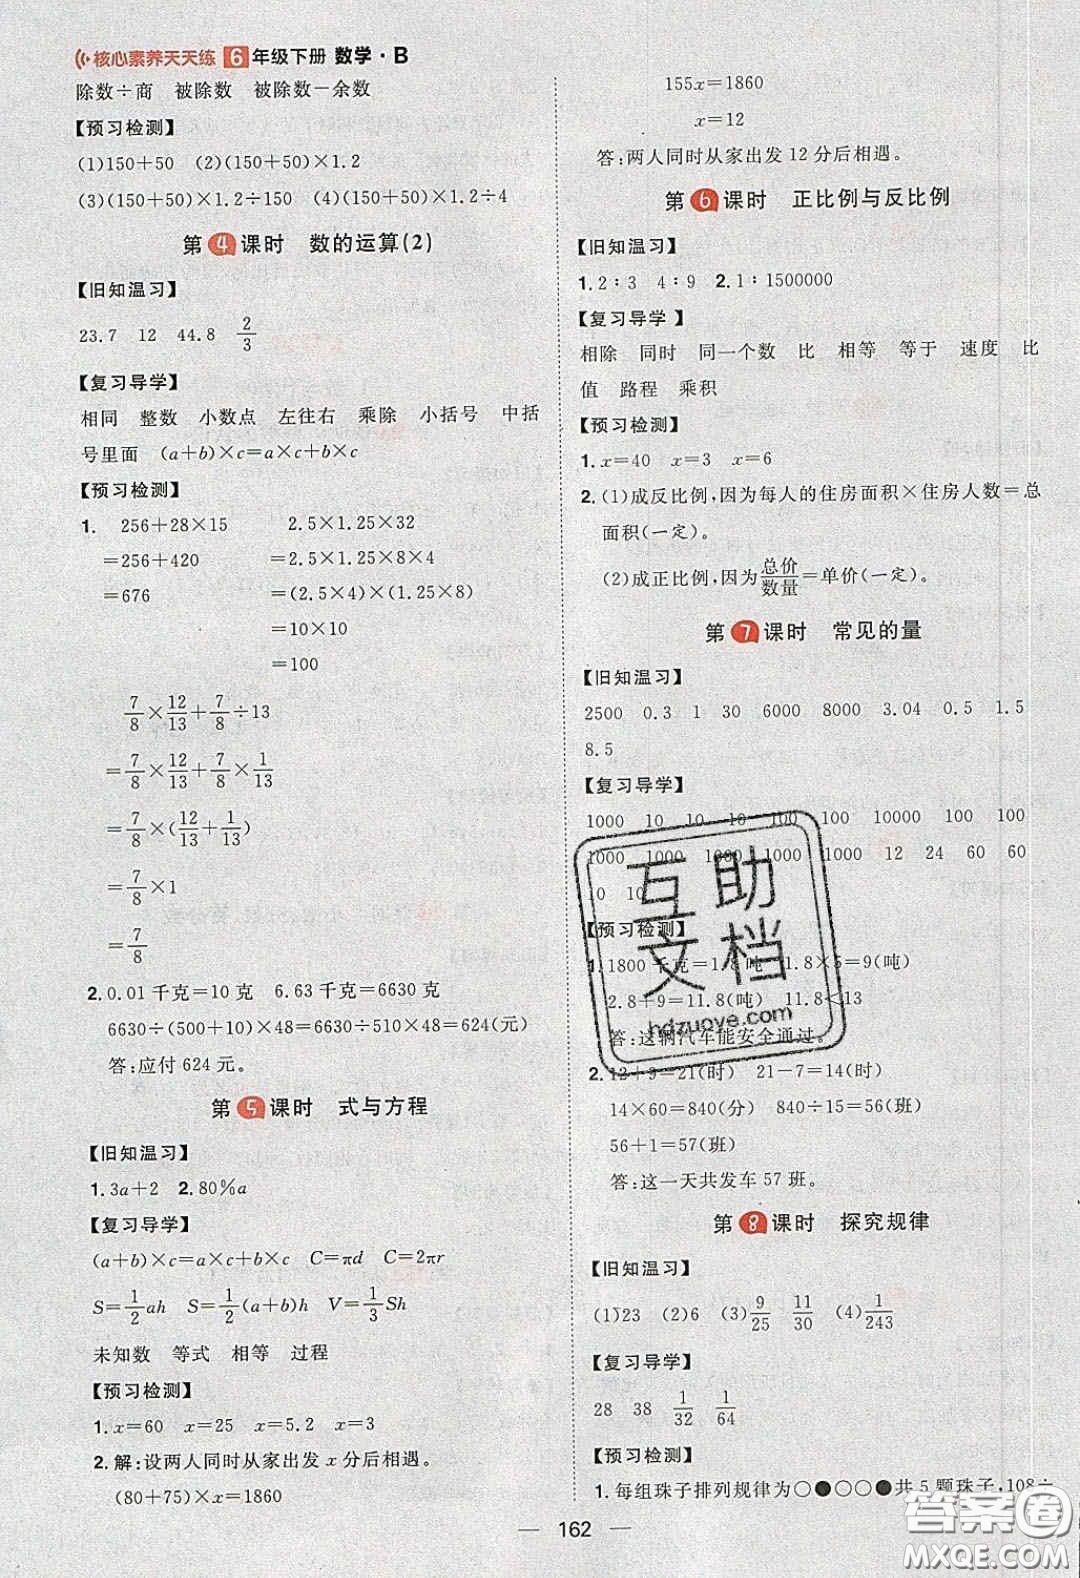 核心素养天天练 6年级下册 数学·B
除数÷商 被除数 被除数－余数
【预习检测】
(1)150＋50 (2)(150＋50)×1.2
(3)(150＋50)×1.2÷150 (4)(150＋50)×1.2÷4
第4课时 数的运算(2)
【旧知温习】
23.7 12 44.8 2/3
【复习导学】
相同 整数 小数点 左往右 乘除 小括号 中括
号里面 (a＋b)×c＝a×c＋b×c
【预习检测】
1. 256＋28×15 2.5×1.25×32
＝256＋420 ＝2.5×1.25×8×4
＝676 ＝(2.5×4)×(1.25×8)
＝10×10
＝100
7/8×12/13＋7/8÷13
＝7/8×12/13＋7/8×1/13
＝7/8×(12/13＋1/13)
＝7/8×1
＝7/8
2.0.01千克＝10克 6.63千克＝6630克
6630÷(500＋10)×48＝6630÷510×48＝624(元)
答:应付624元。
第5课时 式与方程
【旧知温习】
1.3a＋2 2.80%a
【复习导学】
(a＋b)×c＝a×c＋b×c C＝πd C＝2πr
S＝1/2ah S＝1/2(a＋b)h V＝1/3Sh
未知数 等式 相等 过程
【预习检测】
1.x＝60 x＝25 x＝5 x＝7
2.解:设两人同时从家出发x分后相遇。
(80＋75)×x＝1860
155x＝1860
x＝12
答:两人同时从家出发12分后相遇。
第6课时 正比例与反比例
【旧知温习】
1.2∶3 4∶9 2.1∶1500000
【复习导学】
相除 同时 同一个数 比 相等 等于 速度 比
值 路程 乘积
【预习检测】
1.x＝40 x＝3 x＝6
2.(1)成反比例,因为每人的住房面积×住房人数＝总
面积(一定)。
(2)成正比例,因为总价/数量＝单价(一定)。
第7课时 常见的量
【旧知温习】
2500 0.3 1 30 6000 8000 3.04 0.5 1.5
8.5
【复习导学】
1000 10 10 10 100 100 100 10000 100 100
1000 1000 1000 1000 1000 12 24 60 60
10 10
【预习检测】
1.1800千克＝1.8吨 1.8×5＝9(吨)
2.8＋9＝11.8(吨) 11.8＜13
答:这辆汽车能安全通过。
2.12＋9＝21(时) 21－7＝14(时)
14×60＝840(分) 840÷15＝56(班)
56＋1＝57(班)
答:这一天共发车57班。
第8课时 探究规律
【旧知温习】
(1)23 (2)6 (3)9/25 11/30 (4)1/243
【复习导学】
28 38 1/32 1/64
【预习检测】
1.每组珠子排列规律为○●○○●共5颗珠子,108÷
162
互助
文档
hdzuoye.com
答案圈
MXQE.COM